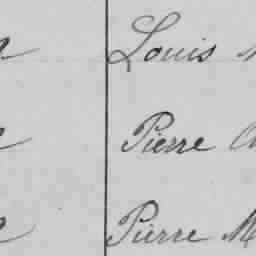 Louis
Pierre
Pierre M